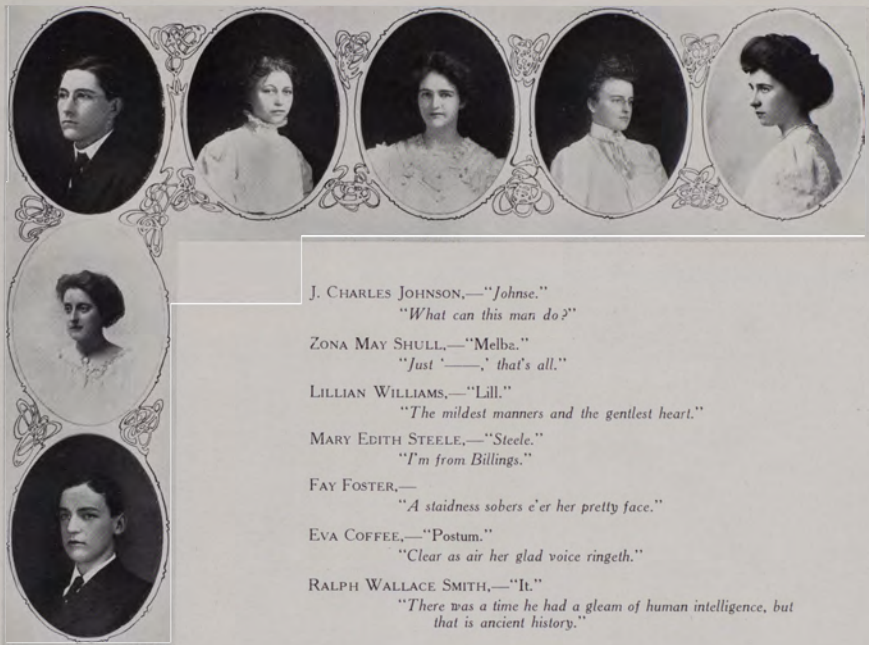 J. CHARLES JOHNSON,—"Johnse."
"What can this man do?"
ZONA MAY SHULL,—"Melba."
"Just '——,' that's all."
LILLIAN WILLIAMS,—"Lill."
"The mildest manners and the gentlest heart."
MARY EDITH STEELE,—"Steele."
"I'm from Billings."
FAY FOSTER,—
"A staidness sobers e'er her pretty face."
EVA COFFEE,—"Postum."
"Clear as air her glad voice ringeth."
RALPH WALLACE SMITH,—"It."
"There was a time he had a gleam of human intelligence, but
that is ancient history."